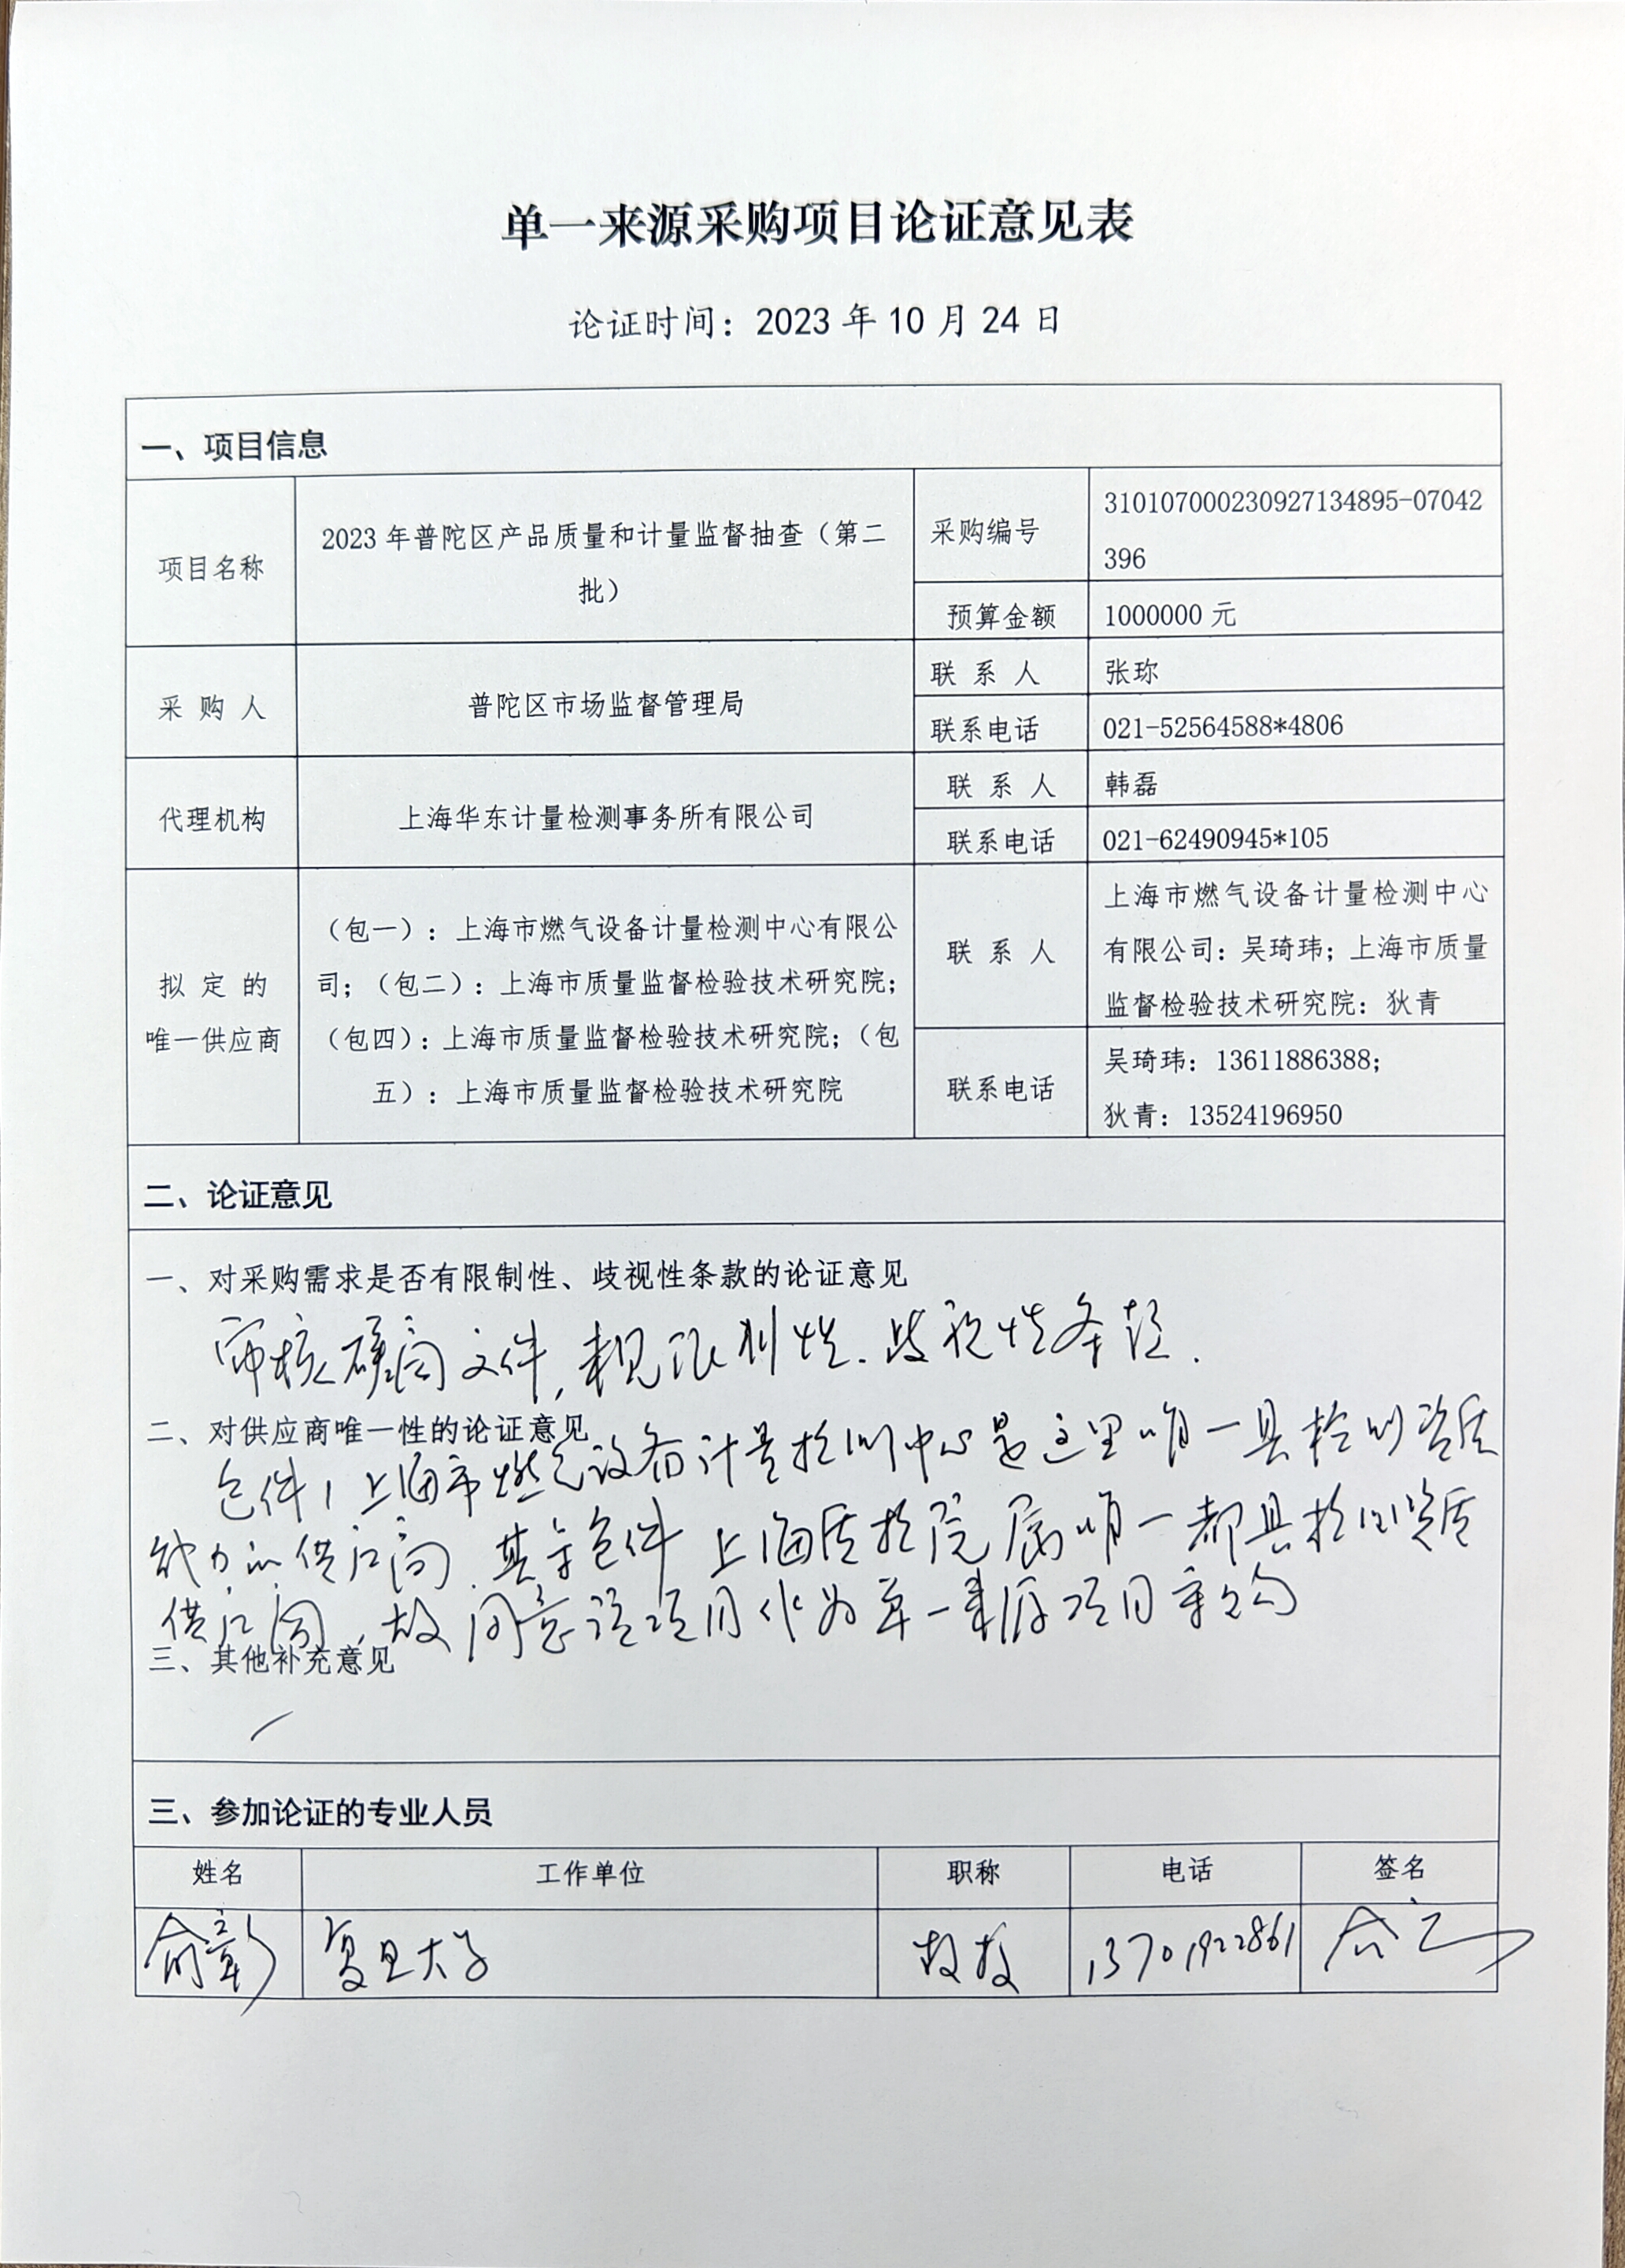 单一来源采购项目论证意见表
论证时间：2023 年 10 月 24 日
一、项目信息
项目名称
2023 年普陀区产品质量和计量监督抽查（第二
批）
采购编号
310107000230927134895-07042
396
预算金额
1000000 元
采 购 人
普陀区市场监督管理局
联 系 人
张珎
联系电话
021-52564588*4806
代理机构
上海华东计量检测事务所有限公司
联 系 人
韩磊
联系电话
021-62490945*105
拟 定 的
唯一供应商
（包一）：上海市燃气设备计量检测中心有限公
司；（包二）：上海市质量监督检验技术研究院；
（包四）：上海市质量监督检验技术研究院；（包
五）：上海市质量监督检验技术研究院
联 系 人
上海市燃气设备计量检测中心
有限公司：吴琦玮；上海市质量
监督检验技术研究院：狄青
联系电话
吴琦玮：13611886388；
狄青：13524196950
二、论证意见
一、对采购需求是否有限制性、歧视性条款的论证意见
审核磋商文件，未见限制性、歧视性条款.
二、对供应商唯一性的论证意见
包件1上海市燃气设备计量检测中心是这里唯一具检测资质
能力的供应商. 其余包件 上海质检院属唯一都具检测资质
供应商，故同意该项目作为单一来源项目采购
三、其他补充意见
/
三、参加论证的专业人员
姓名
工作单位
职称
电话
签名
俞彰
复旦大学
教授
13701922861